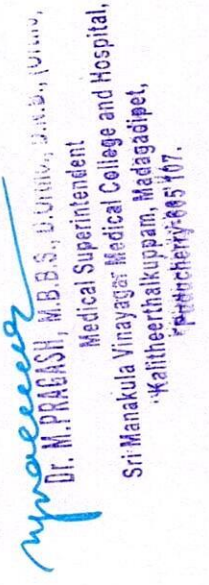 Dr. M.PRAGASH, M.B.B.S., D.Ortho., D.N.B.,
Medical Superintendent
Sri Manakula Vinayagar Medical College and Hospital,
Kalitheerthalkuppam, Madagadipet,
Puducherry-605 107.